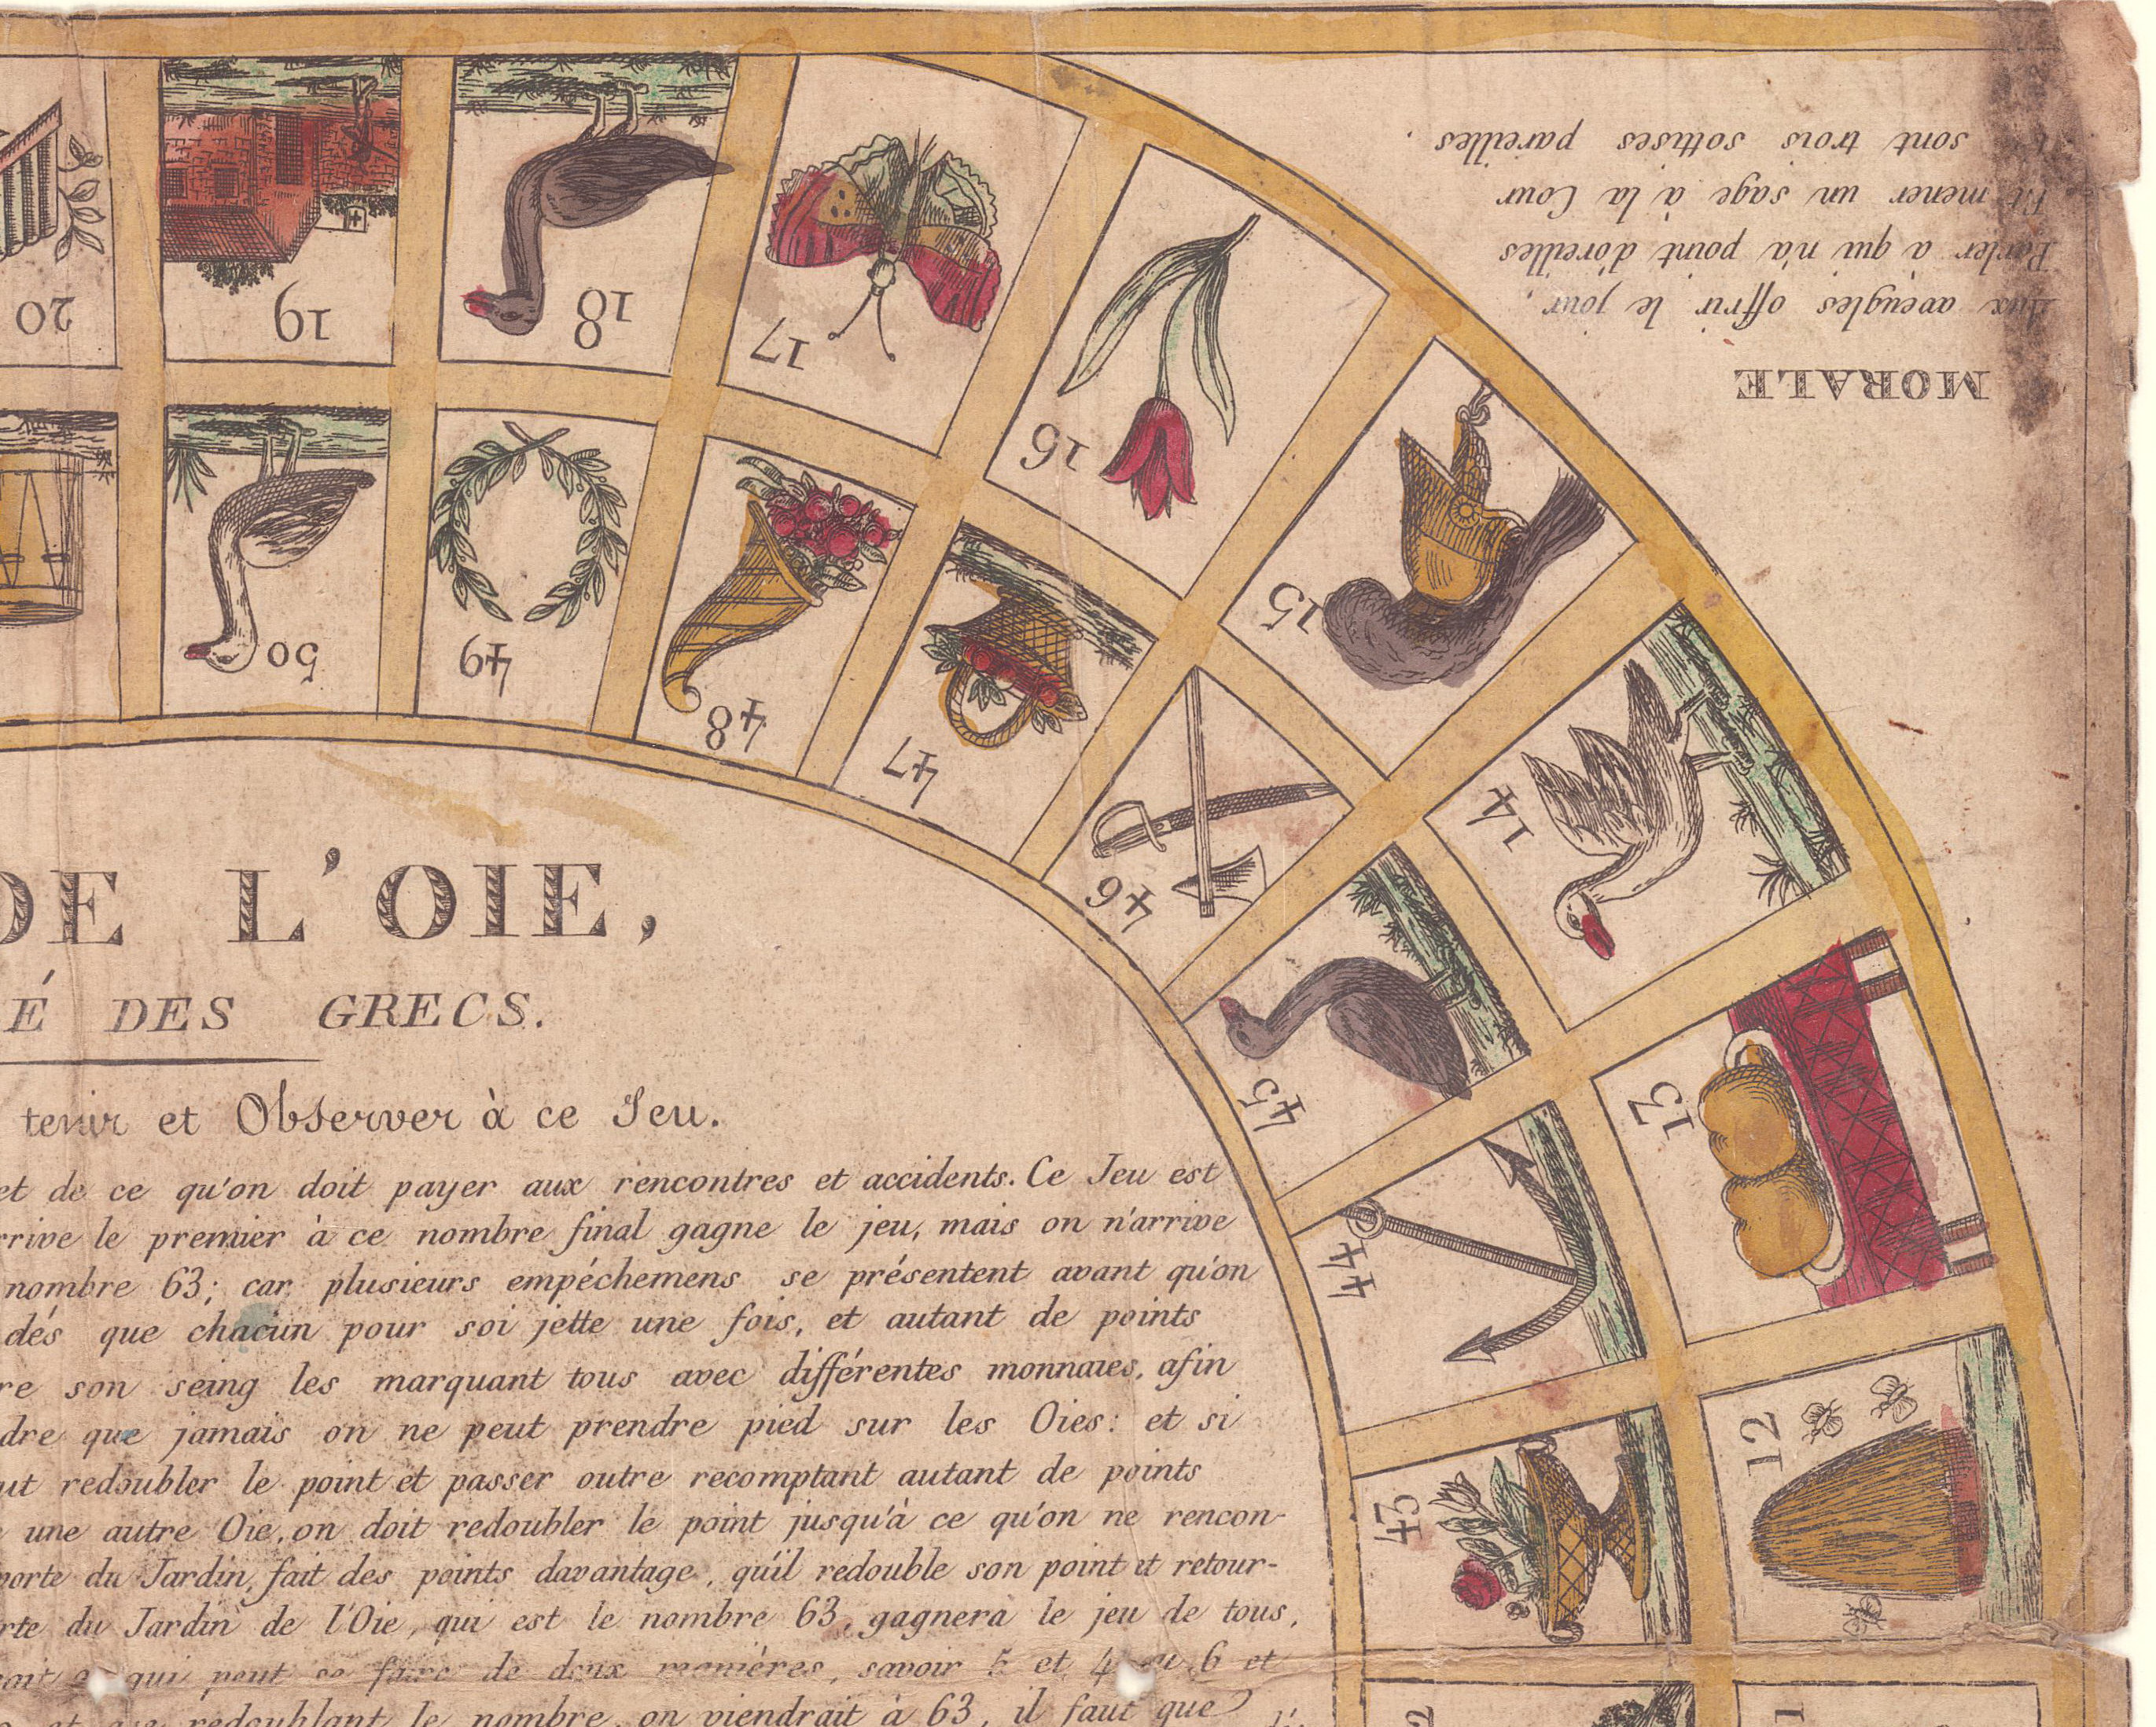 MORALE
Aux aveugles offrir le jour,
Parler a qui n'a point d'oreilles
Et mener un sage à la Cour
sont trois sottises pareilles.
20
19
18
17
16
15
14
13
12
50
49
48
47
46
45
44
43
DE L'OIE,
É DES GRECS.
tenir et Observer à ce Jeu.
et de ce qu'on doit payer aux rencontres et accidents. Ce Jeu est
rrive le premier à ce nombre final gagne le jeu, mais on n'arrive
nombre 63; car plusieurs empéchemens se présentent avant qu'on
dés que chacun pour soi jette une fois, et autant de points
re son seing les marquant tous avec différentes monnaies, afin
dre que jamais on ne peut prendre pied sur les Oies: et si
ut redoubler le point et passer outre recomptant autant de points
une autre Oie, on doit redoubler le point jusqu'à ce qu'on ne rencon-
porte du Jardin, fait des points davantage, qu'il redouble son point et retour-
rte du Jardin de l'Oie, qui est le nombre 63, gagnera le jeu de tous,
qui peut se faire de deux manières, savoir 5 et 4 ou 6 et
redoublant le nombre, on viendrait à 63, il faut que